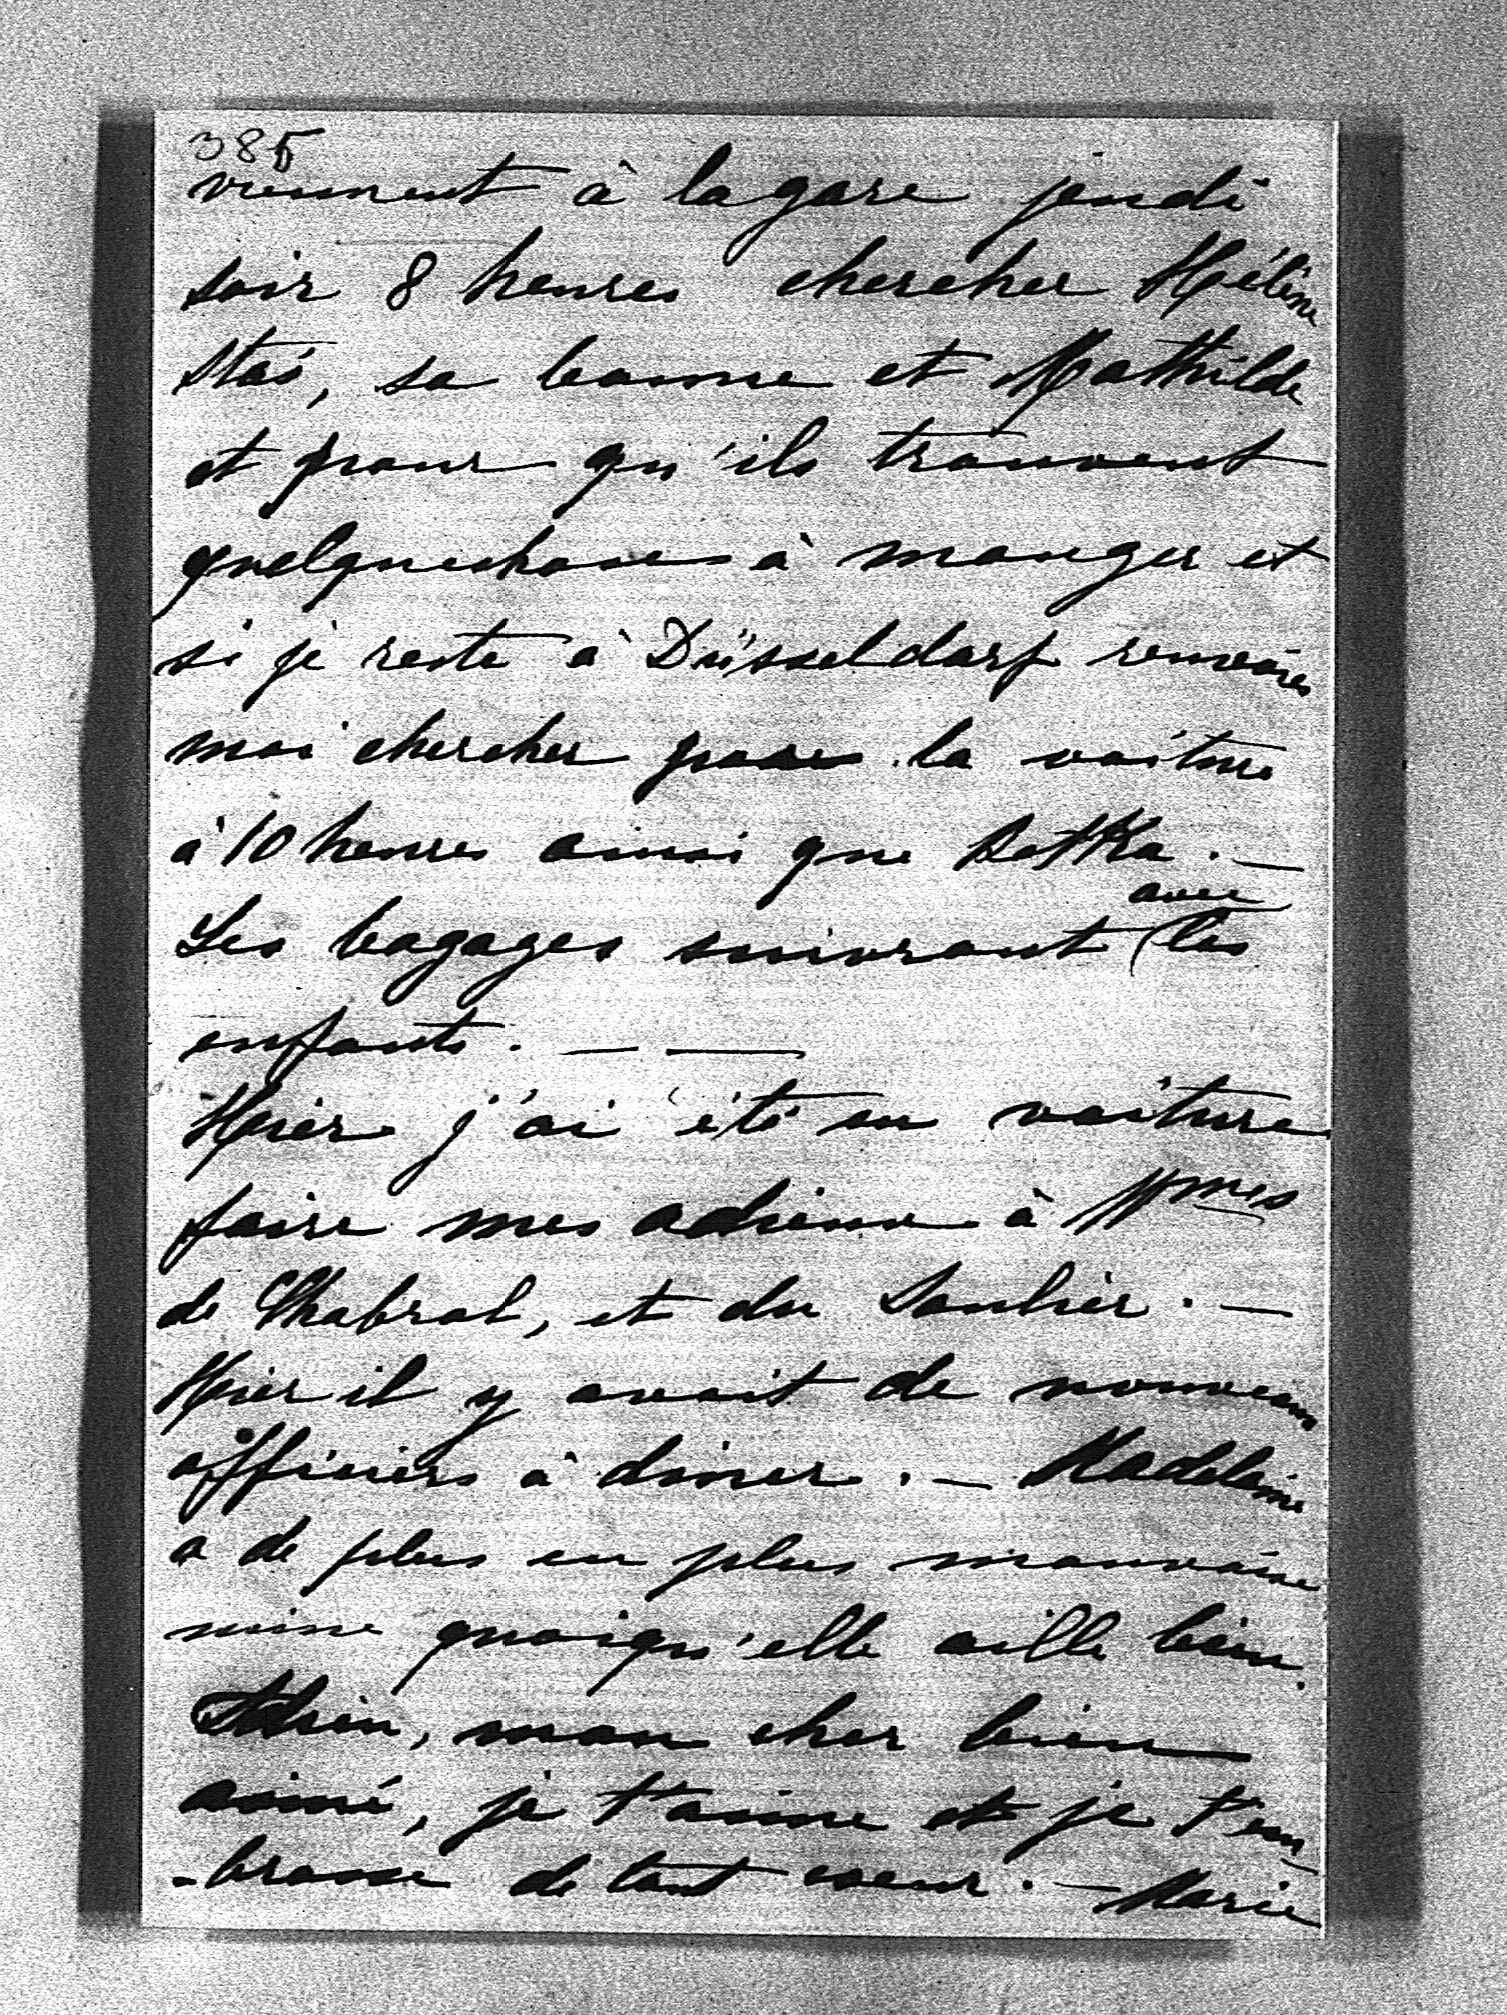 385
viennent à la gare jeudi
soir 8 heures chercher Hélène
Stas, sa bonne et Mathilde
et pour qu'ils trouvent
quelquechose à manger et
si je reste à Düsseldorf
moi chercher la voiture
à 10 heures ainsi que
avec
Les bagages suivront les
enfants. — —
Hier j'ai été en voiture
faire mes adieux à Mmes
de Chabrol, et du Saulier. —
Hier il y avait de nouveau
officiers à diner. — Madeleine
a de plus en plus mauvaise
mine quoiqu'elle aille bien.
Adieu, mon cher bien
aimé, je t'aime et je t'em
-brasse de tout coeur. — Marie